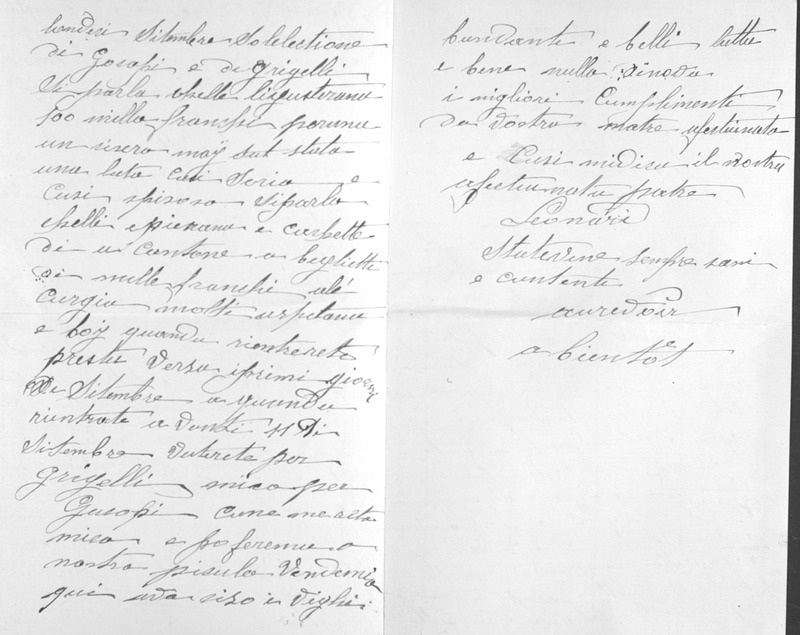 lundisi Sitembre So lelectione
di Gosopi e di Grigelli
Si parla chelli ligusteranu
500 milla franchi porunu
un sisera maÿ sut statu
una luta Cusi Seria e
Cusi spisosa Siparla
chelli epienanu e casselle
di u Cantone a bigliette
di mille franchi ulé
Curgia molti aspetanu
e boÿ quandu rientrerete
prestu Verso i primi giorni
di Sitembre a quandu
rientrate avanti 11 di
Sitembre Vuterete per
grigelli mica per
Gusopi cune merita
mica e poferemu a
nostra picula Vendemia
qui uva sisò e Vighi
bundante e belli tuttu
e bene nulla Dinovu
i migliori Cumplimenti
da Vostra matre afectiunata
e Cusi midicu il Vostru
afectiunatu patre
Leonardi
Statevine sempre sani
e cuntenti
auredoir
a bientôt